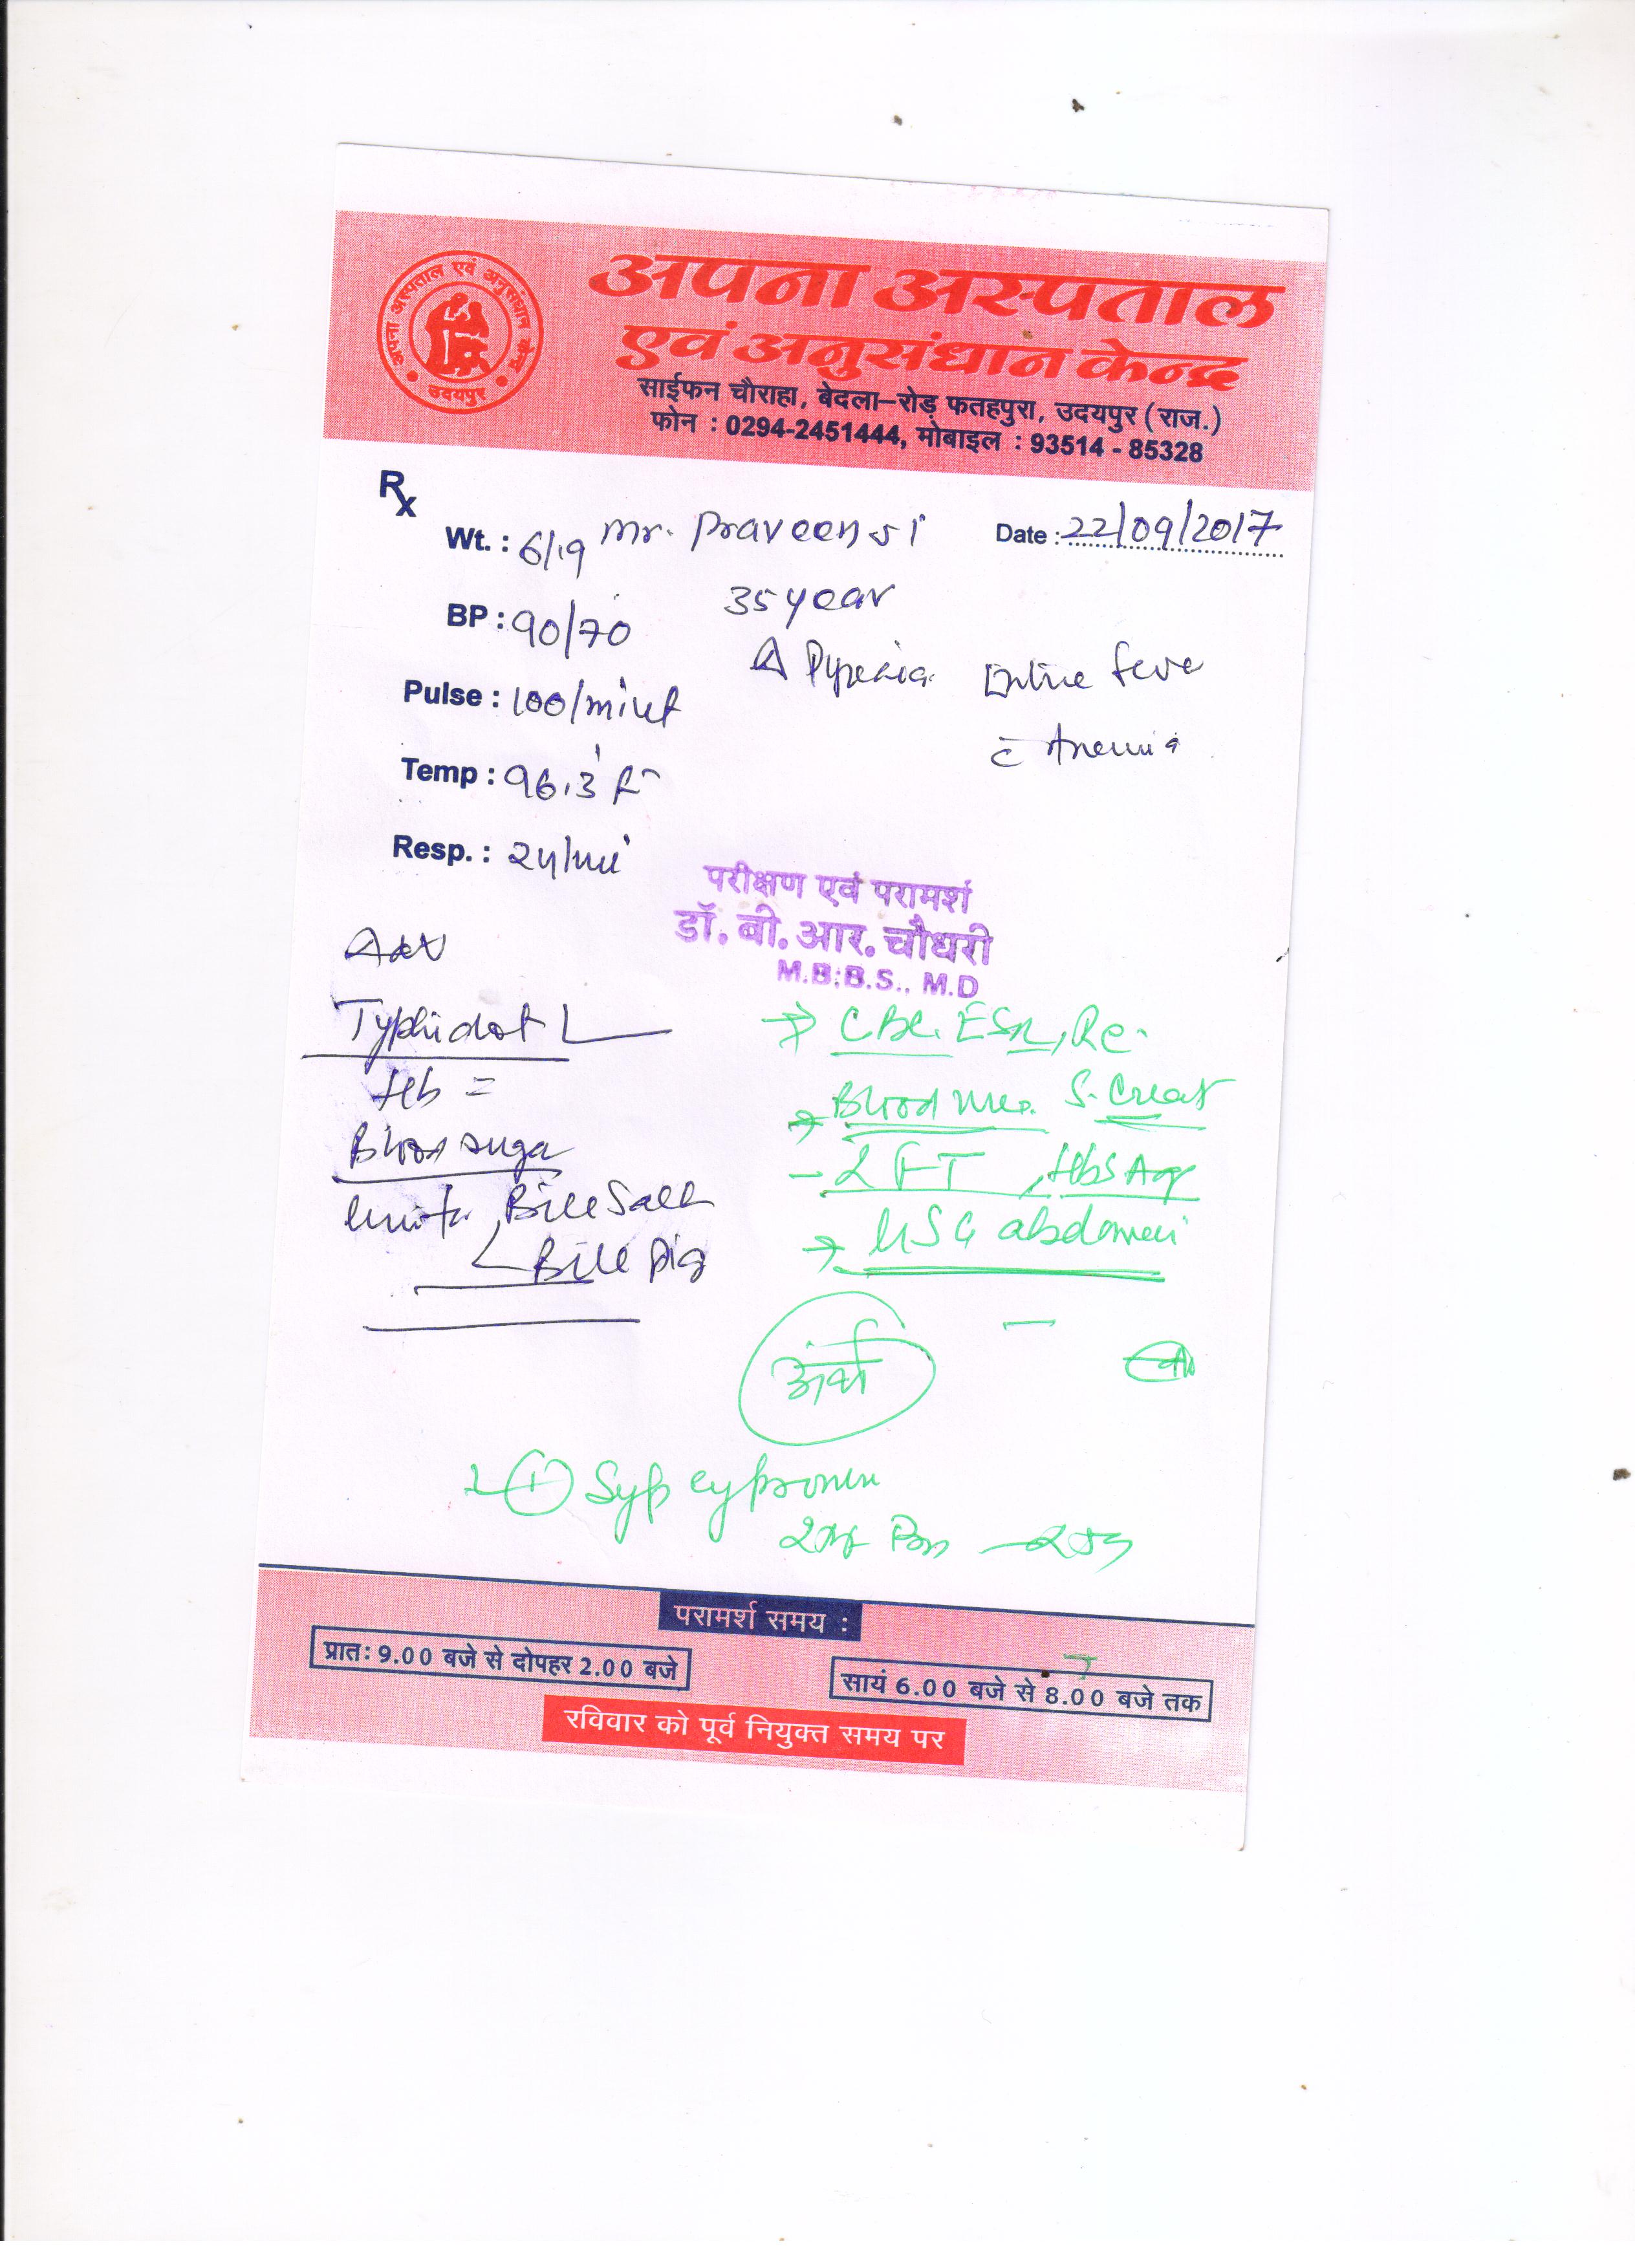 अपना अस्पताल एवं अनुसंधान केन्द्र
उदयपुर
अपना अस्पताल
एवं अनुसंधान केन्द्र
साईफन चौराहा, बेदला–रोड़ फतहपुरा, उदयपुर (राज.)
फोन : 0294-2451444, मोबाइल : 93514 - 85328
Rx
Wt. : Mr. Praveen Date : 22/09/2017
35 year
BP : 90/70
Pulse : 100/
Temp : 96.3 F
Resp. : 24/
Fever
c̄ Anemia
परीक्षण एवं परामर्श
डॉ. बी. आर. चौधरी
M.B.B.S., M.D
Adv
Typhidot
Hb =
Blood suga
Bile Salt
Bile pig
→ CBC. ESR,
→ Blood S. Creat
- LFT, HbsAg
→ USG abdomen
① Syp
परामर्श समय :
प्रातः 9.00 बजे से दोपहर 2.00 बजे
सायं 6.00 बजे से 8.00 बजे तक
7
रविवार को पूर्व नियुक्त समय पर